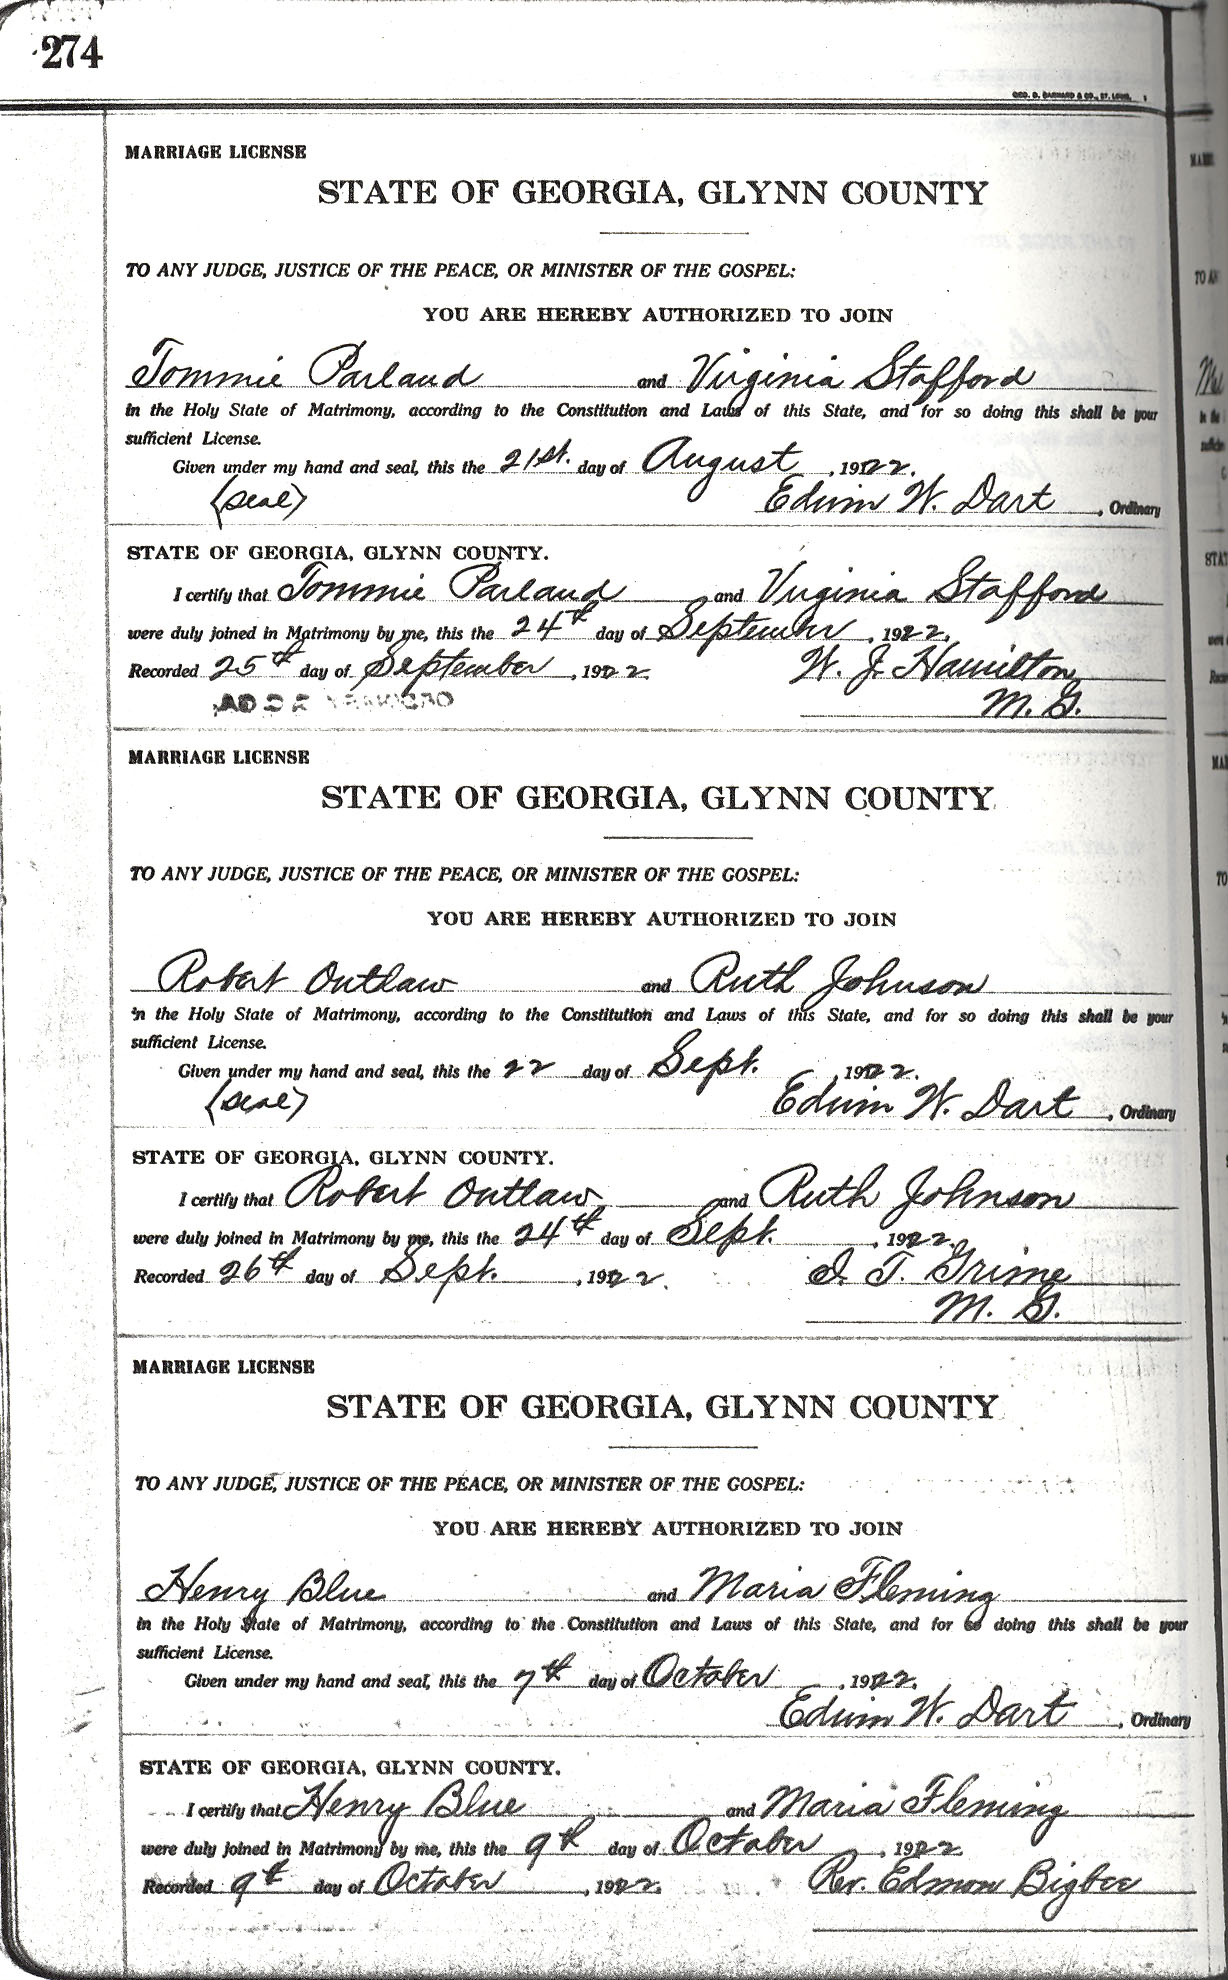 274
GEO. D. BARNARD & CO., ST. LOUIS.
MARRIAGE LICENSE
STATE OF GEORGIA, GLYNN COUNTY
TO ANY JUDGE, JUSTICE OF THE PEACE, OR MINISTER OF THE GOSPEL:
YOU ARE HEREBY AUTHORIZED TO JOIN
Tommie Parland and Virginia Stafford
in the Holy State of Matrimony, according to the Constitution and Laws of this State, and for so doing this shall be your
sufficient License.
Given under my hand and seal, this the 21st. day of August, 1922.
(Seal) Edwin W. Dart, Ordinary
STATE OF GEORGIA, GLYNN COUNTY.
I certify that Tommie Parland and Virginia Stafford
were duly joined in Matrimony by me, this the 24th day of September, 1922.
Recorded 25th day of September, 1922 W. J. Hamilton
M. G.
MARRIAGE LICENSE
STATE OF GEORGIA, GLYNN COUNTY
TO ANY JUDGE, JUSTICE OF THE PEACE, OR MINISTER OF THE GOSPEL:
YOU ARE HEREBY AUTHORIZED TO JOIN
Robert Outlaw and Ruth Johnson
in the Holy State of Matrimony, according to the Constitution and Laws of this State, and for so doing this shall be your
sufficient License.
Given under my hand and seal, this the 22 day of Sept., 1922.
(Seal) Edwin W. Dart, Ordinary
STATE OF GEORGIA, GLYNN COUNTY.
I certify that Robert Outlaw and Ruth Johnson
were duly joined in Matrimony by me, this the 24th day of Sept., 1922.
Recorded 26th day of Sept., 1922. I. T. Grime
M. G.
MARRIAGE LICENSE
STATE OF GEORGIA, GLYNN COUNTY
TO ANY JUDGE, JUSTICE OF THE PEACE, OR MINISTER OF THE GOSPEL:
YOU ARE HEREBY AUTHORIZED TO JOIN
Henry Blue and Maria Fleming
in the Holy State of Matrimony, according to the Constitution and Laws of this State, and for so doing this shall be your
sufficient License.
Given under my hand and seal, this the 7th day of October, 1922.
Edwin W. Dart, Ordinary
STATE OF GEORGIA, GLYNN COUNTY.
I certify that Henry Blue and Maria Fleming
were duly joined in Matrimony by me, this the 9th day of October, 1922
Recorded 9th day of October, 1922. Rev. Edmon Bigbee